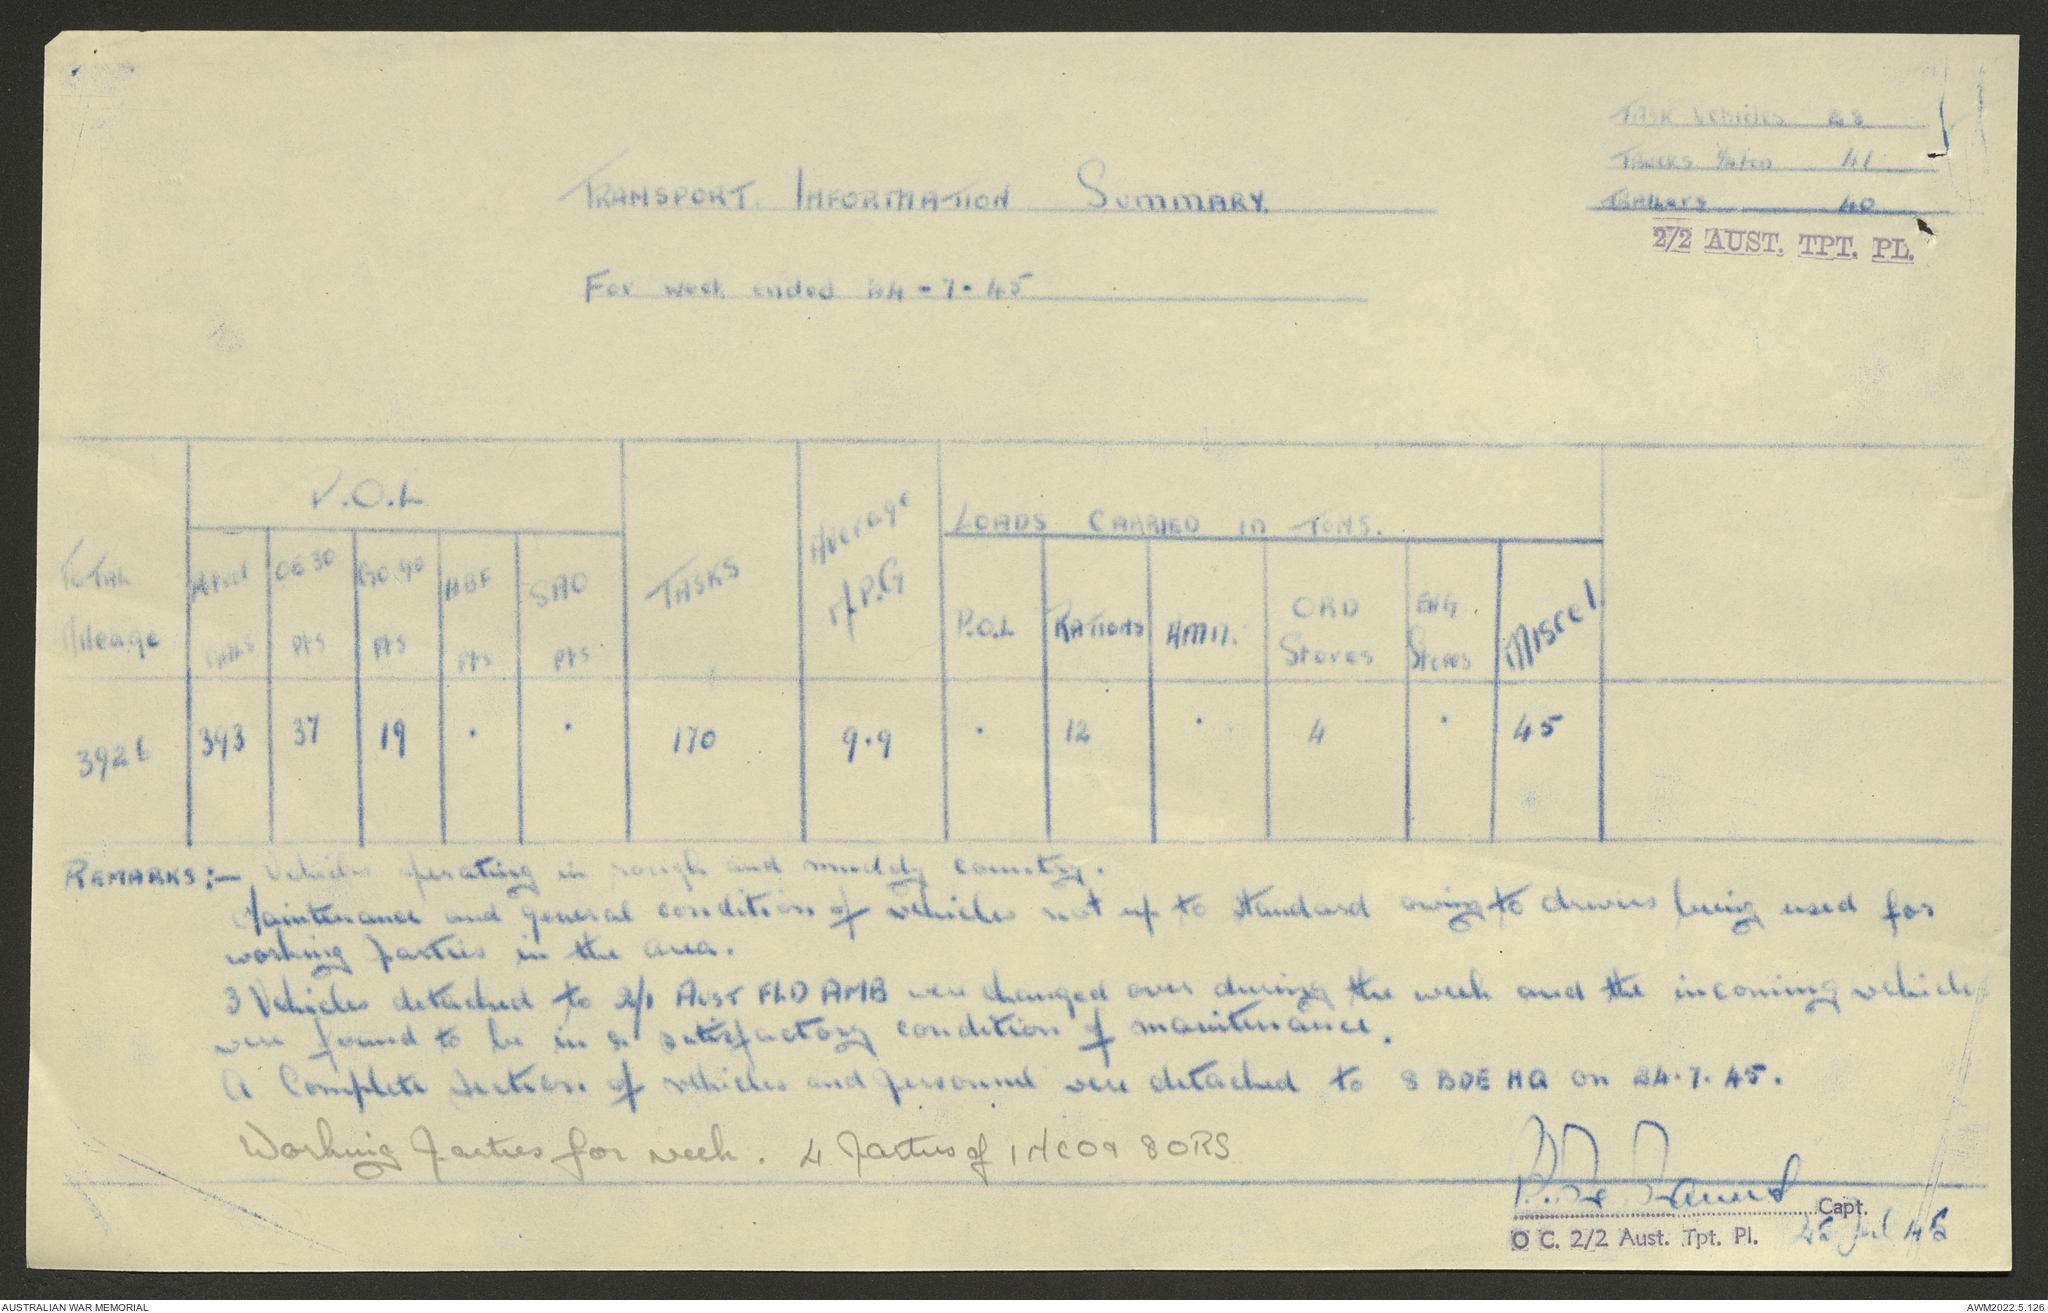 Task Vehicles 28
Trucks
Trailers 40
2/2 AUST. TPT. PL.
TRANSPORT INFORMATION SUMMARY.
For week ended 24-7-45
TOTAL Mileage
P.O.L
OE 30 pts
GO 90 pts
HBF pts
SAO pts
TASKS
Average M.P.G
LOADS CARRIED in TONS.
P.O.L
RATIONS
AMN.
ORD Stores
ENG Stores
Miscel.
392 393 37 19 . . 170 9.9 . 12 . 4 . 45
REMARKS:- Vehicles operating in rough and muddy country.
Maintenance and general condition of vehicles not up to standard owing to drivers being used for
working parties in the area.
3 Vehicles detached to 2/1 Aust FLD AMB were changed over during the week and the incoming vehicles
were found to be in a satisfactory condition of maintenance.
A Complete section of vehicles and personnel were detached to 8 BDE HQ on 24.7.45.
Working parties for week. 4 parties of 1 NCO & 8 ORS
Capt.
O C. 2/2 Aust. Tpt. Pl. 25 Jul 45
AUSTRALIAN WAR MEMORIAL
AWM2022.5.126